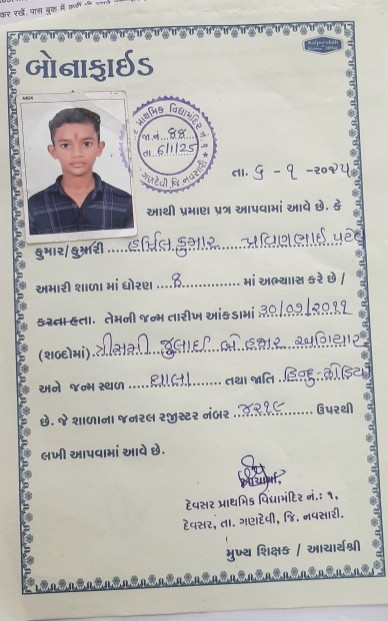 કર રખેં. પાસ બુક મેં
Kalpvruksh
બોનાફાઈડ
પ્રાથમિક વિદ્યામંદિર નં. ૧
જા.નં. 88
તા. 6/1/25
ગણદેવી જિ. નવસારી
તા. ૬ - ૧ -૨૦૨૫
આથી પ્રમાણ પત્ર આપવામાં આવે છે. કે
કુમાર/કુમારી હર્ષિલકુમાર પ્રવિણભાઈ પટેલ
અમારી શાળા માં ધોરણ 8 માં અભ્યાસ કરે છે /
કરતા હતા. તેમની જન્મ તારીખ આંકડામાં 30/0૭/૨૦૧૧
(શબ્દોમાં) ત્રીસમી જુલાઈ બે હજાર અગિયાર
અને જન્મ સ્થળ તથા જાતિ હિન્દુ-
છે. જે શાળાના જનરલ રજીસ્ટર નંબર ૪૨૧૯ ઉપરથી
લખી આપવામાં આવે છે.
આચાર્ય
દેવસર પ્રાથમિક વિદ્યામંદિર નં.: ૧,
દેવસર, તા. ગણદેવી, જિ. નવસારી.
મુખ્ય શિક્ષક / આચાર્યશ્રી